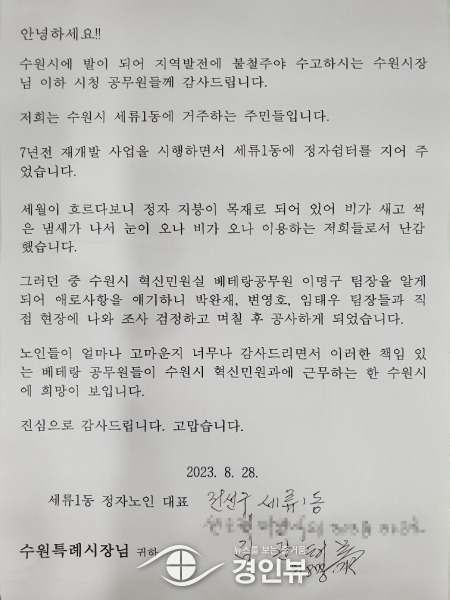 안녕하세요!!
수원시에 발이 되어 지역발전에 불철주야 수고하시는 수원시장
님 이하 시청 공무원들께 감사드립니다.
저희는 수원시 세류1동에 거주하는 주민들입니다.
7년전 재개발 사업을 시행하면서 세류1동에 정자쉼터를 지어 주
었습니다.
세월이 흐르다보니 정자 지붕이 목재로 되어 있어 비가 새고 썩
은 냄새가 나서 눈이 오나 비가 오나 이용하는 저희들로서 난감
했습니다.
그러던 중 수원시 혁신민원실 베테랑공무원 이명구 팀장을 알게
되어 애로사항을 얘기하니 박완재, 변영호, 임태우 팀장들과 직
접 현장에 나와 조사 검정하고 며칠 후 공사하게 되었습니다.
노인들이 얼마나 고마운지 너무나 감사드리면서 이러한 책임 있
는 베테랑 공무원들이 수원시 혁신민원과에 근무하는 한 수원시
에 희망이 보입니다.
진심으로 감사드립니다. 고맙습니다.
2023. 8. 28.
세류1동 정자노인 대표 권선구 세류1동
수원특례시장님 귀하
뉴스를 보는 즐거움
경인뷰